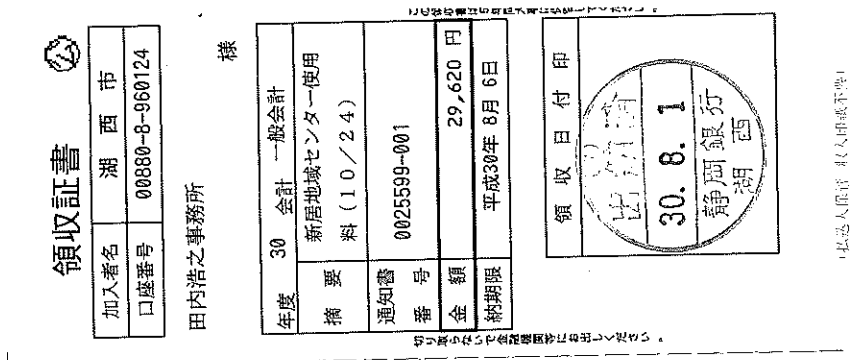 領収証書
加入者名 湖西市
口座番号 00880-8-960124
田内浩之事務所 様
年度 30 会計 一般会計
摘要 新居地域センター使用
料(10/24)
通知書
番号 0025599-001
金額 29,620 円
納期限 平成30年 8月 6日
切り取らないで金融機関等にお出しください。
領収日付印
出納済
30.8.1
静岡銀行
湖西